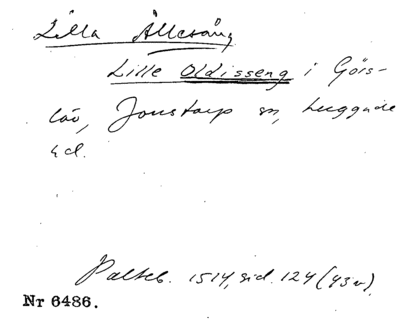 Lilla Ällesäng
Lille Oldisseng i Göis-
löv, Jonstorp sn, Luggude
hd.
Paltsb. 1514, sid. 124 (93v).
Nr 6486.